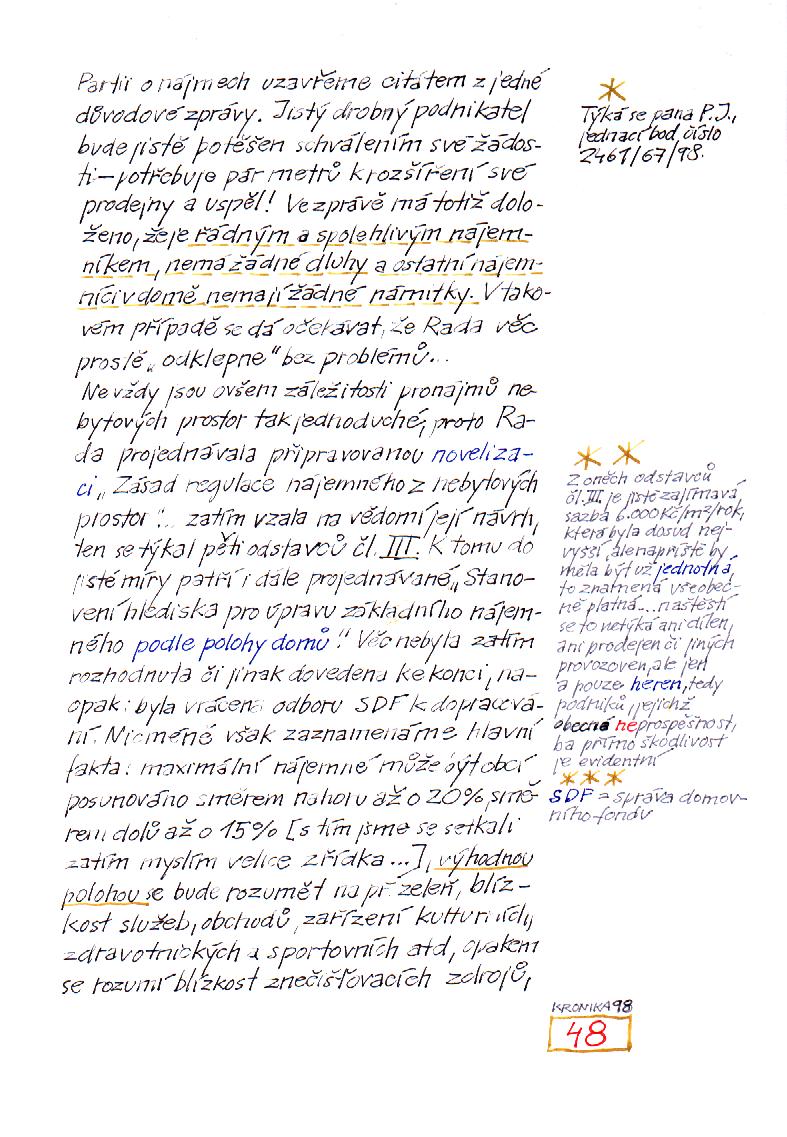 Partii o nájmech uzavřeme citátem z jedné
důvodové zprávy. Jistý drobný podnikatel
bude jistě potěšen schválením své žádos-
ti – potřebuje pár metrů k rozšíření své
prodejny a uspěl! Ve zprávě má totiž dolo-
ženo, že je řádným a spolehlivým nájem-
níkem, nemá žádné dluhy a ostatní nájem-
níci v domě nemají žádné námitky. V tako-
vém případě se dá očekávat, že Rada věc
prostě „odklepne“ bez problémů...
Ne vždy jsou ovšem záležitosti pronájmů ne-
bytových prostor tak jednoduché, proto Ra-
da projednávala připravovanou noveliza-
ci „Zásad regulace nájemného z nebytových
prostor“... zatím vzala na vědomí její návrh,
ten se týkal pěti odstavců čl. III. K tomu do
jisté míry patří i dále projednávané „Stano-
vení hlediska pro úpravu základního nájem-
ného podle polohy domů“. Věc nebyla zatím
rozhodnuta či jinak dovedena ke konci, na-
opak: byla vrácena odboru SDF k dopracová-
ní. Nicméně však zaznamenáme hlavní
fakta: maximální nájemné může být obcí
posunováno směrem nahoru až o 20%, smě-
rem dolů až o 15% [s tím jsme se setkali
zatím myslím velice zřídka ...], výhodnou
polohou se bude rozumět např. zeleň, blíz-
kost služeb, obchodů, zařízení kulturních,
zdravotnických a sportovních atd, opakem
se rozumí blízkost znečišťovacích zdrojů,
*
Týká se pana P.J.,
jednací bod číslo
2461/67/98.
* *
Z oněch odstavců
čl. III. je jistě zajímavá
sazba 6.000 Kč/m²/rok,
která byla dosud nej-
vyšší, ale napříště by
měla být už jednotná,
to znamená všeobec-
ně platná... naštěstí
se to netýká ani dílen,
ani prodejen či jiných
provozoven, ale jen
a pouze heren, tedy
podniků, jejichž
obecná neprospěšnost,
ba přímo škodlivost
je evidentní
* * *
SDF = správa domov-
ního fondu
KRONIKA 98
48